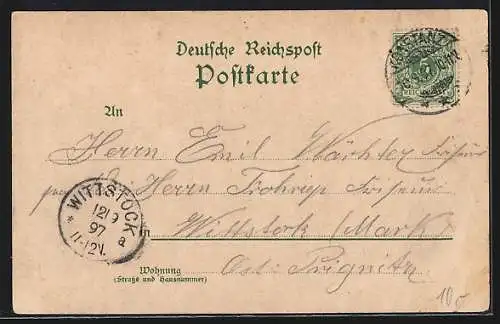 Deutsche Reichspost
Postkarte
KONSTANZ
5
An
Herrn Emil Wächter Friseur
Herrn Frohriep Friseur
in Wittstock (Mark)
WITTSTOCK
12/9
97
11-12V.
a
Wohnung
(Straße und Hausnummer)
Ost-Prignitz